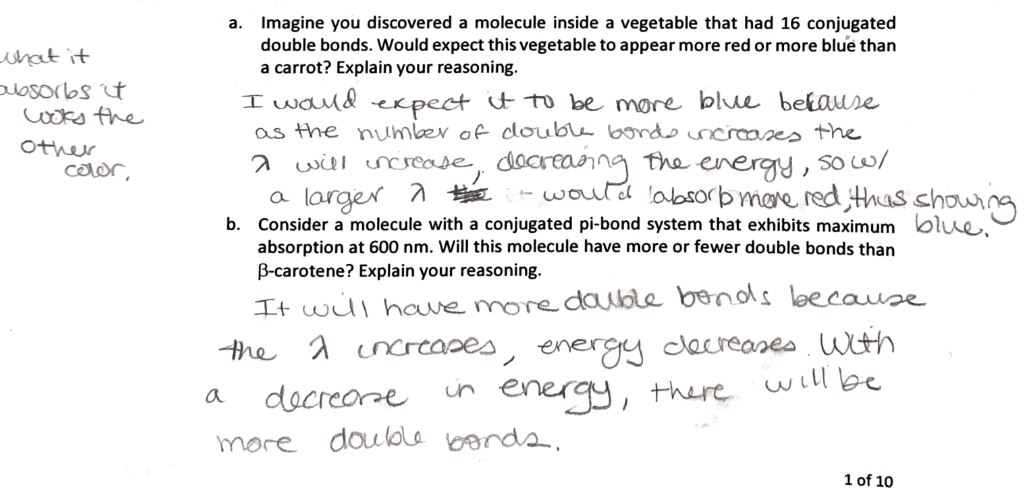 a. Imagine you discovered a molecule inside a vegetable that had 16 conjugated
double bonds. Would expect this vegetable to appear more red or more blue than
a carrot? Explain your reasoning.
what it
absorbs it
looks the
other
color.
I would expect it to be more blue because
as the number of double bonds increases the
λ will increase, decreasing the energy, so w/
a larger λ it would absorb more red, thus showing
blue.
b. Consider a molecule with a conjugated pi-bond system that exhibits maximum
absorption at 600 nm. Will this molecule have more or fewer double bonds than
β-carotene? Explain your reasoning.
It will have more double bonds because
the λ increases, energy decreases. With
a decrease in energy, there will be
more double bonds.
1 of 10